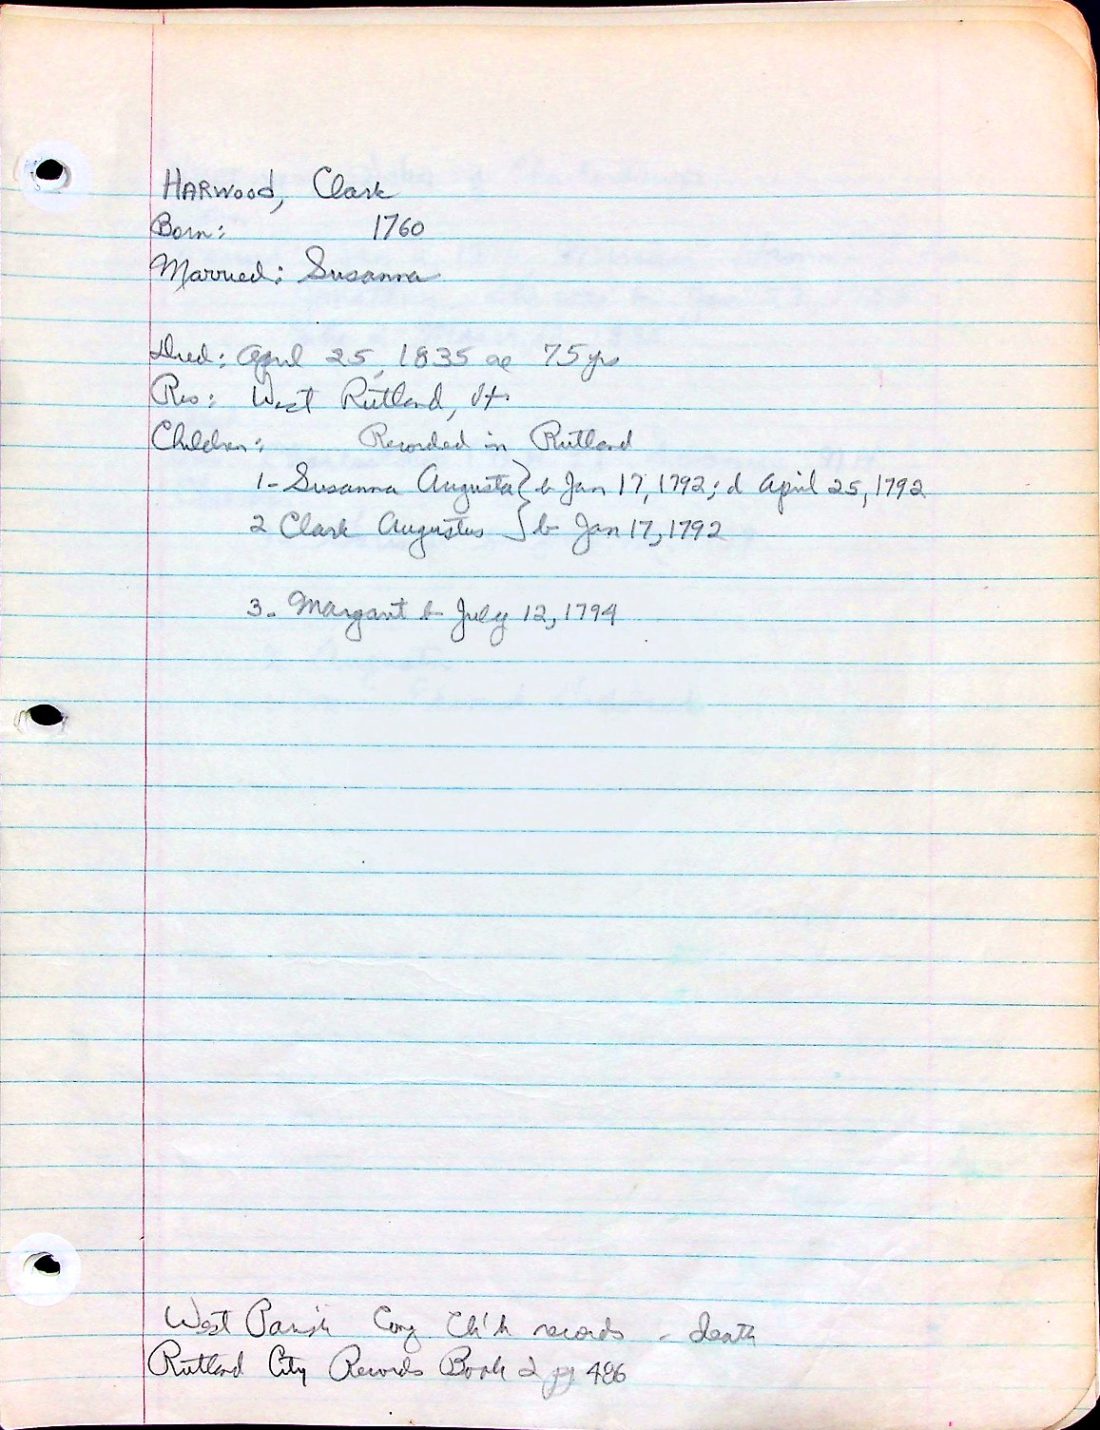 HARWOOD, Clark
Born: 1760
Married: Susanna
Died: April 25, 1835 ae 75 yrs
Res: West Rutland, Vt.
Children: Recorded in Rutland
1- Susanna Augusta } b Jan 17, 1792; d April 25, 1792
2 Clark Augustus } b Jan 17, 1792
3- Margaret b July 12, 1794
West Parish Cong Ch'h records - death
Rutland City Records Book 2 pg 486